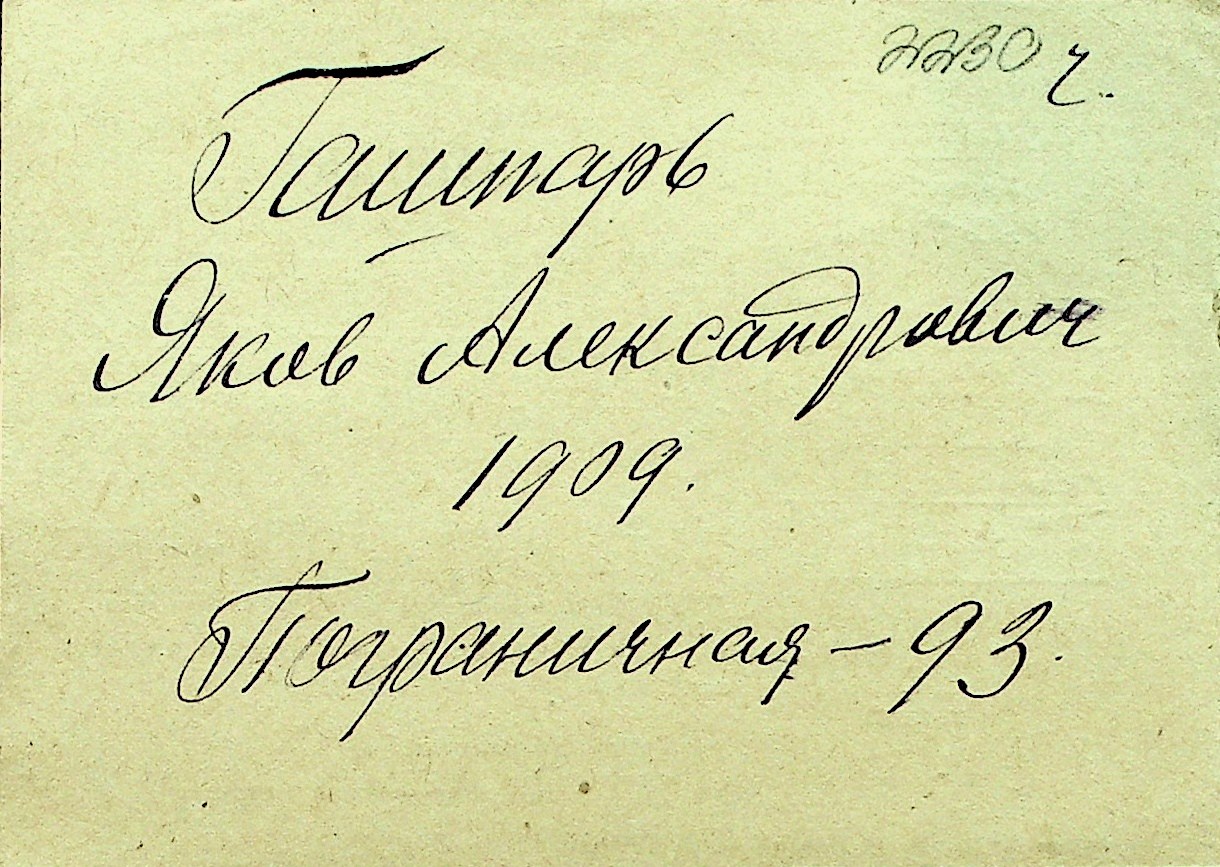 2230 ч.
Гашпарь
Яков Александрович
1909.
Пограничная – 93.